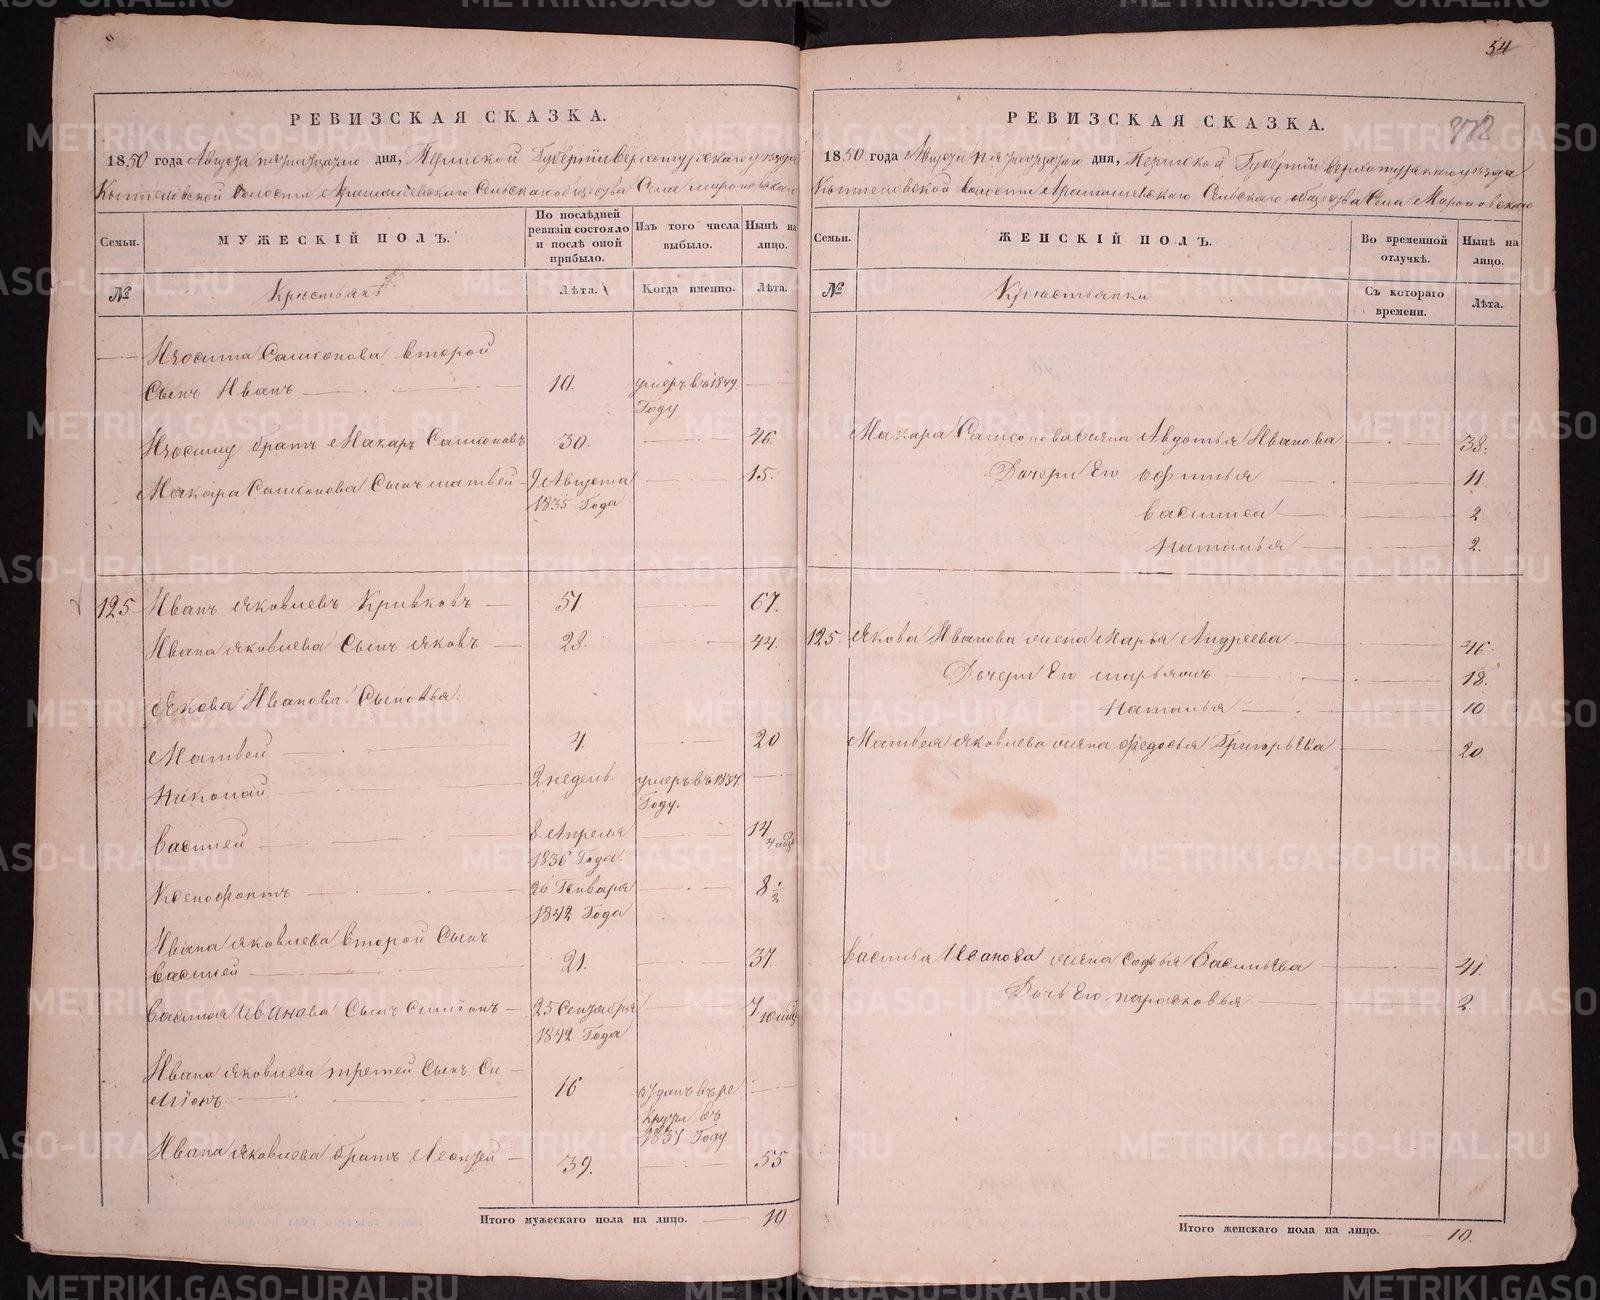 54
РЕВИЗСКАЯ СКАЗКА.
1850 года Августа пятнадцатаго дня, Пермской Губернiи Верхотурскаго уѣзда
волости Арамашевскаго Сельскаго общества Села Мироновскаго
Семьи.
МУЖЕСКIЙ ПОЛЪ.
По послѣдней ревизiи состояло и послѣ оной прибыло.
Изъ того числа выбыло.
Нынѣ на лицо.
№
Крестьянъ
Лѣта.
Когда именно.
Лѣта.
Изосима Самсонова второй
Сынъ Иванъ 10. умеръ въ 1849 Году
Изосиму братъ Макаръ Самсоновъ 30. 46.
Макара Самсонова Сынъ матвей 9 Августа 1835 Года 15.
125 Иванъ яковлевъ Кривковъ 51 67.
Ивана яковлева Сынъ яковъ 28. 44.
Якова Иванова Сыновья:
Матвей 4. 20
Николай 2 недель умеръ въ 1837 Году.
Василей 8. Апреля 1836 Года. 14 4 мѣс
Ксенофонтъ 26 Генваря 1842 Года 8 1/2
Ивана яковлева второй Сынъ
Василей 21. 37
Василья Иванова Сынъ Симионъ 25 Сентября 1842 Года 7 10 мѣс
Ивана яковлева третей Сынъ Си-
мiонъ 16 отданъ въ рекруты въ 1837 Году
Ивана яковлева братъ Леонтей 39. 55
Итого мужескаго пола на лицо. 10.
РЕВИЗСКАЯ СКАЗКА.
1850 года Августа пятнадцатаго дня, Пермской Губернiи Верхотурскаго уѣзда
волости Арамашевскаго Сельскаго общества Села Мироновскаго
Семьи.
ЖЕНСКIЙ ПОЛЪ.
Во временной отлучкѣ.
Нынѣ на лицо.
№
Крестьянки
Съ котораго времени.
Лѣта.
Макара Самсонова жена Авдотья Иванова 38.
Дочери Его офимья 11
Василиса 2.
Наталья 2.
125. Якова Иванова жена Марья Андреева 46
Дочери Его марьямъ 18.
Наталья 10
Матвея яковлева жена федосья Григорьева 20
Василья Иванова жена софья Васильева 41
Дочь Его парасковья 2
Итого женскаго пола на лицо. 10.
METRIKI.GASO-URAL.RU